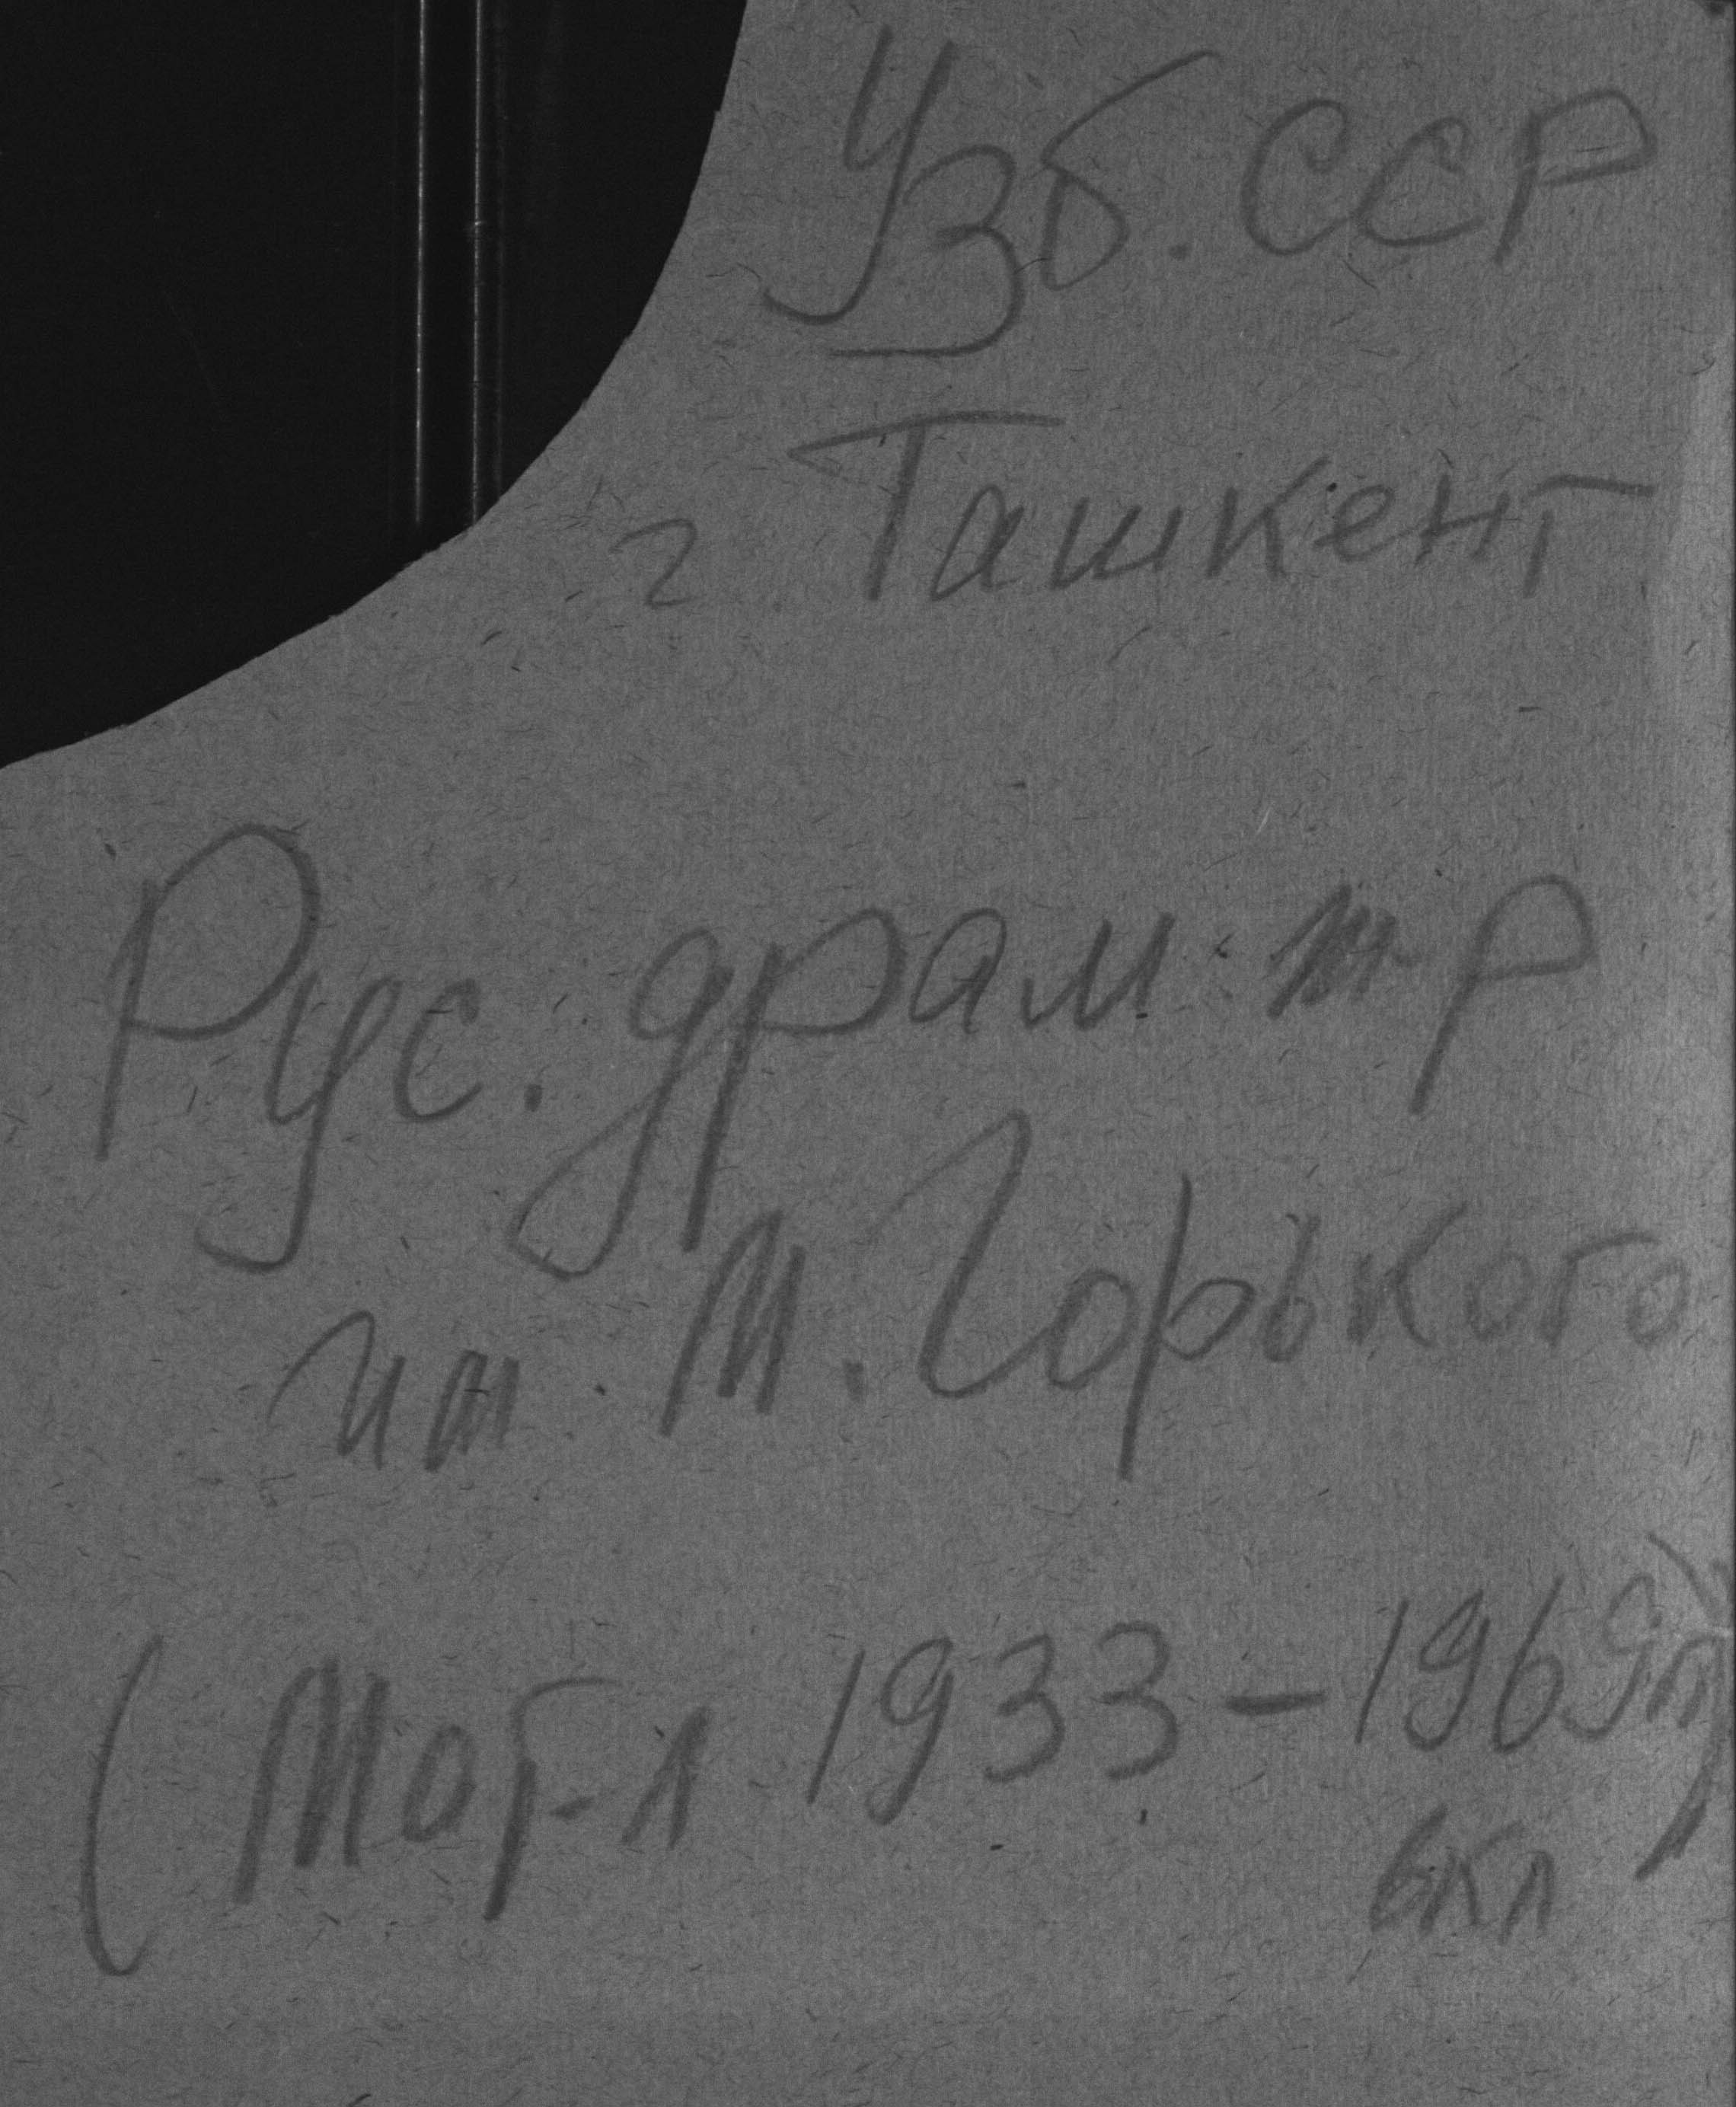 Узб. ССР
г Ташкент
Рус. драм. т-р
им. М. Горького
(Мат-л 1933–1969
вкл)